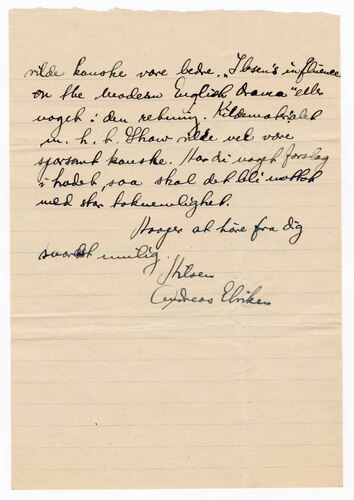 vilde kanske være bedre. „Ibsen's influence
on the Modern English Drama" eller
noget i den retning. Kildematerialet
m. h. t. Shaw vilde vel være
sparsomt kanske. Har du noget forslag
i hodet, saa skal det bli mottat
med stor taknemlighet.
Haaper at høre fra dig
snarest mulig.
Hilsen
Andreas